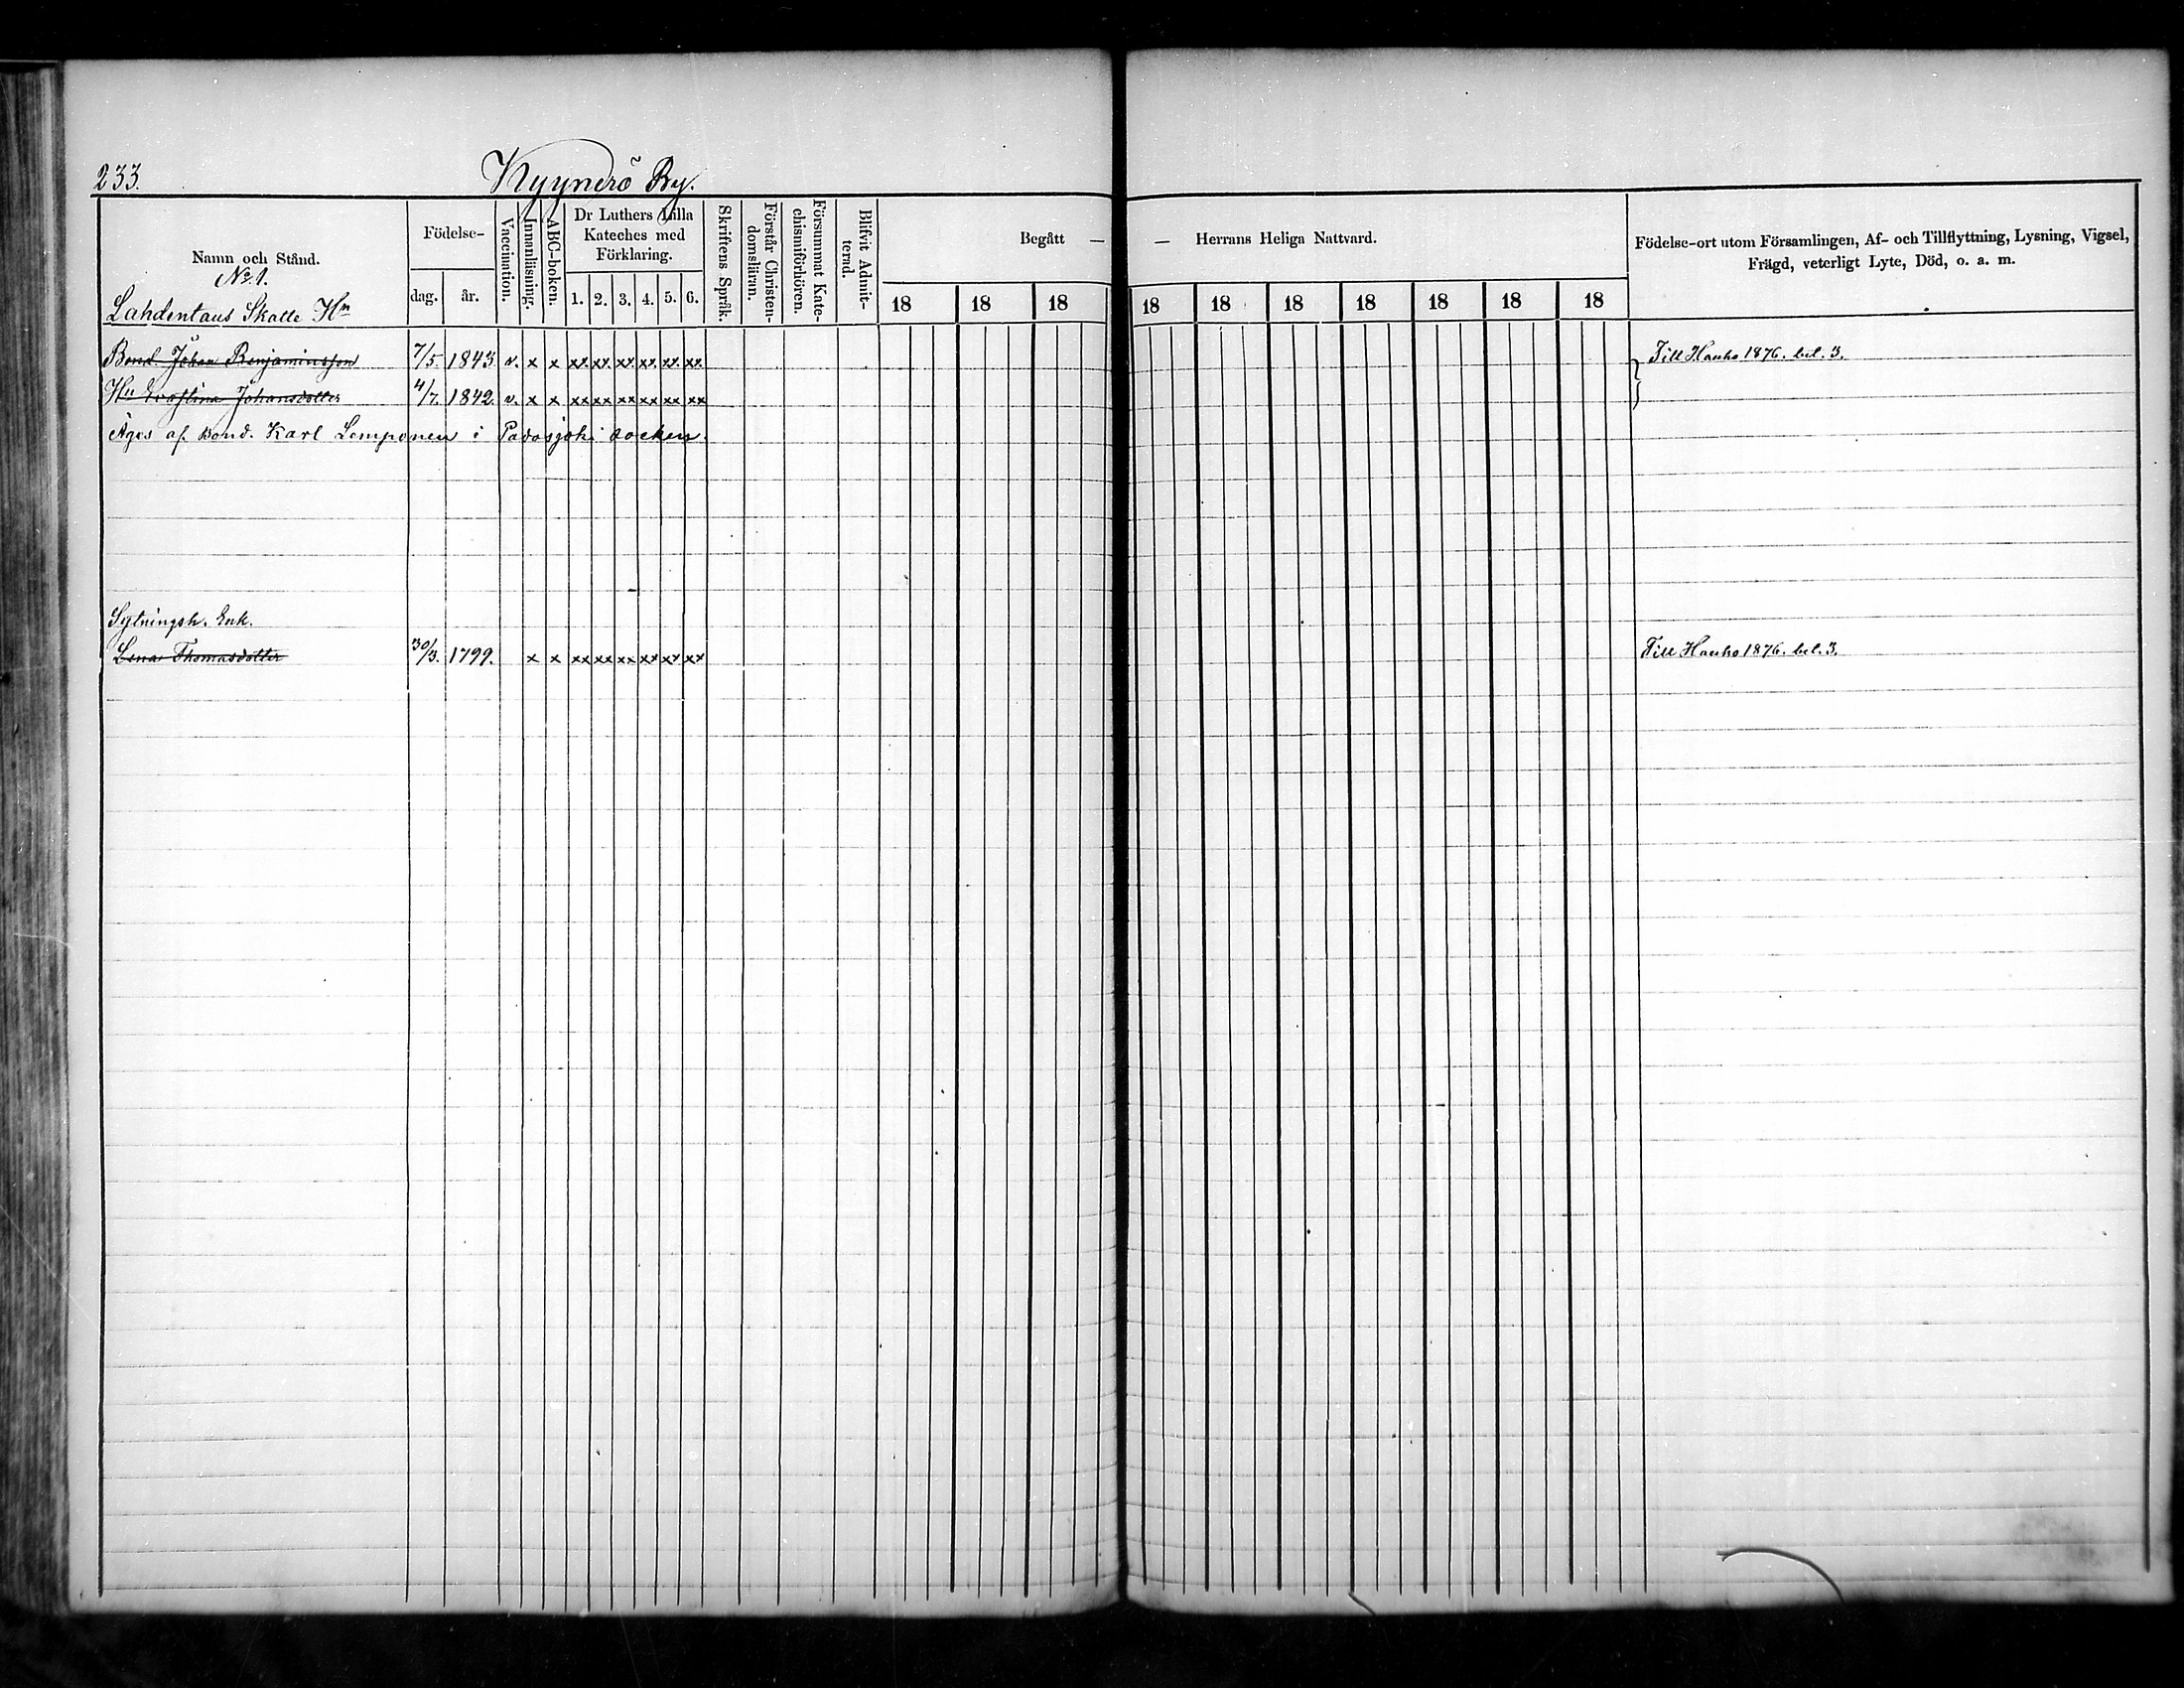 233.
Kyynerö By.
Namn och Stånd.
No 1.
Lahdentaus Skatte Hn
Födelse-
dag. år.
Vaccination.
Innanläsning.
ABC-boken.
Dr Luthers Lilla
Kateches med
Förklaring.
1. 2. 3. 4. 5. 6.
Skriftens Språk.
Förstår Christen-
domsläran.
Försummat Kate-
chismiförhören.
Blifvit Admit-
terad.
Begått — — Herrans Heliga Nattvard.
18 18 18 18 18 18 18 18 18 18
Födelse-ort utom Församlingen, Af- och Tillflyttning, Lysning, Vigsel,
Frägd, veterligt Lyte, Död, o. a. m.
Bond. Johan Benjaminsson 7/5. 1843. v. x x xx. xx. xx. xx. xx. xx. Till Hauho 1876. bel. 3.
Hu Johansdotter 4/7. 1842. v. x x xx xx xx xx xx xx
Äges af bond. Karl Lemponen i Padasjoki socken.
Sytningsh. Enk.
Lena Thomasdotter 30/3. 1799. x x xx xx xx xx xx xx Till Hauho 1876. bel. 3.